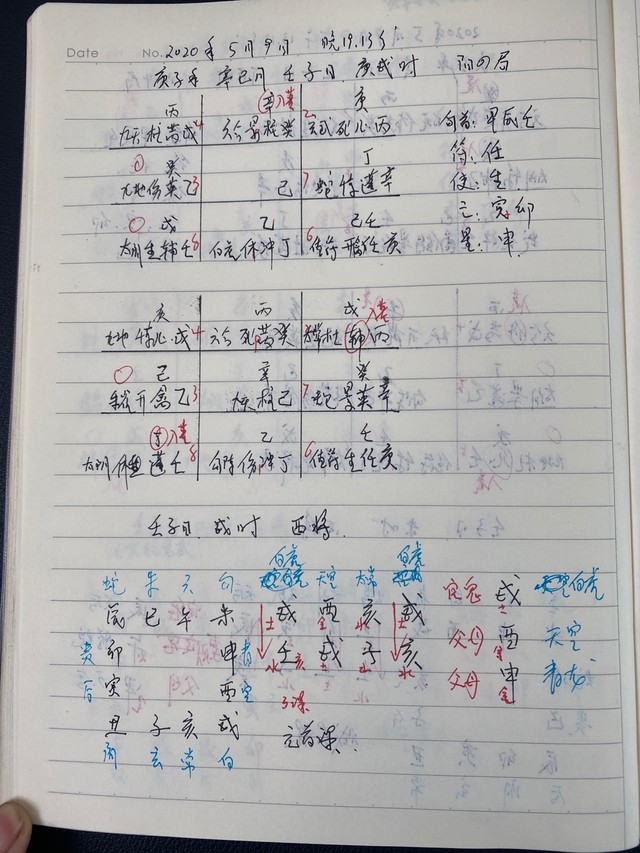 Date No. 2020年5月9日 晚19.13分
庚子年 辛巳月 壬子日 庚戌时 阳四局
丙 辛入墓 庚
九天柱芮戌4 六合景柱癸 2 玄武死心丙 旬首:甲戌壬
癸 丁 符:任
九地伤英乙3 己 7蛇惊蓬辛 使:生
空:寅卯
戌 乙 己壬 星:申
太阴生辅壬8 白虎休冲丁 6值符 任庚
庚 丙 戌 入墓
九地惊心戌4 六合死芮癸 杜辅丙
己 辛 癸
开禽乙3 柱己 7蛇景英辛
丁入墓 乙 壬
太阴休蓬壬8 勾陈伤冲丁 6值符生任庚
壬子日 戌时 酉将
白虎 白虎
蛇 朱 六 勾 天空 太常 官鬼 戌 白虎
辰 巳 午 未 戌 酉 亥 戌 土
土 金 水 土 父母 酉 天空
贵 卯 申 青 壬 戌 子 亥 金
水 土 水 水 父母 申 青龙
后 寅 酉 空 金
丑 子 亥 戌 元首课
阴 玄 常 白